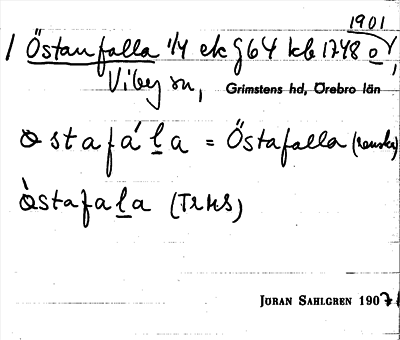 1901
/ Östanfalla 1/4 ek g 64 kb 1748 o
Viby sn, Grimstens hd, Örebro län
ostafáḻa = Östafalla
òstafaḻa (TRHS)
JÖRAN SAHLGREN 1907